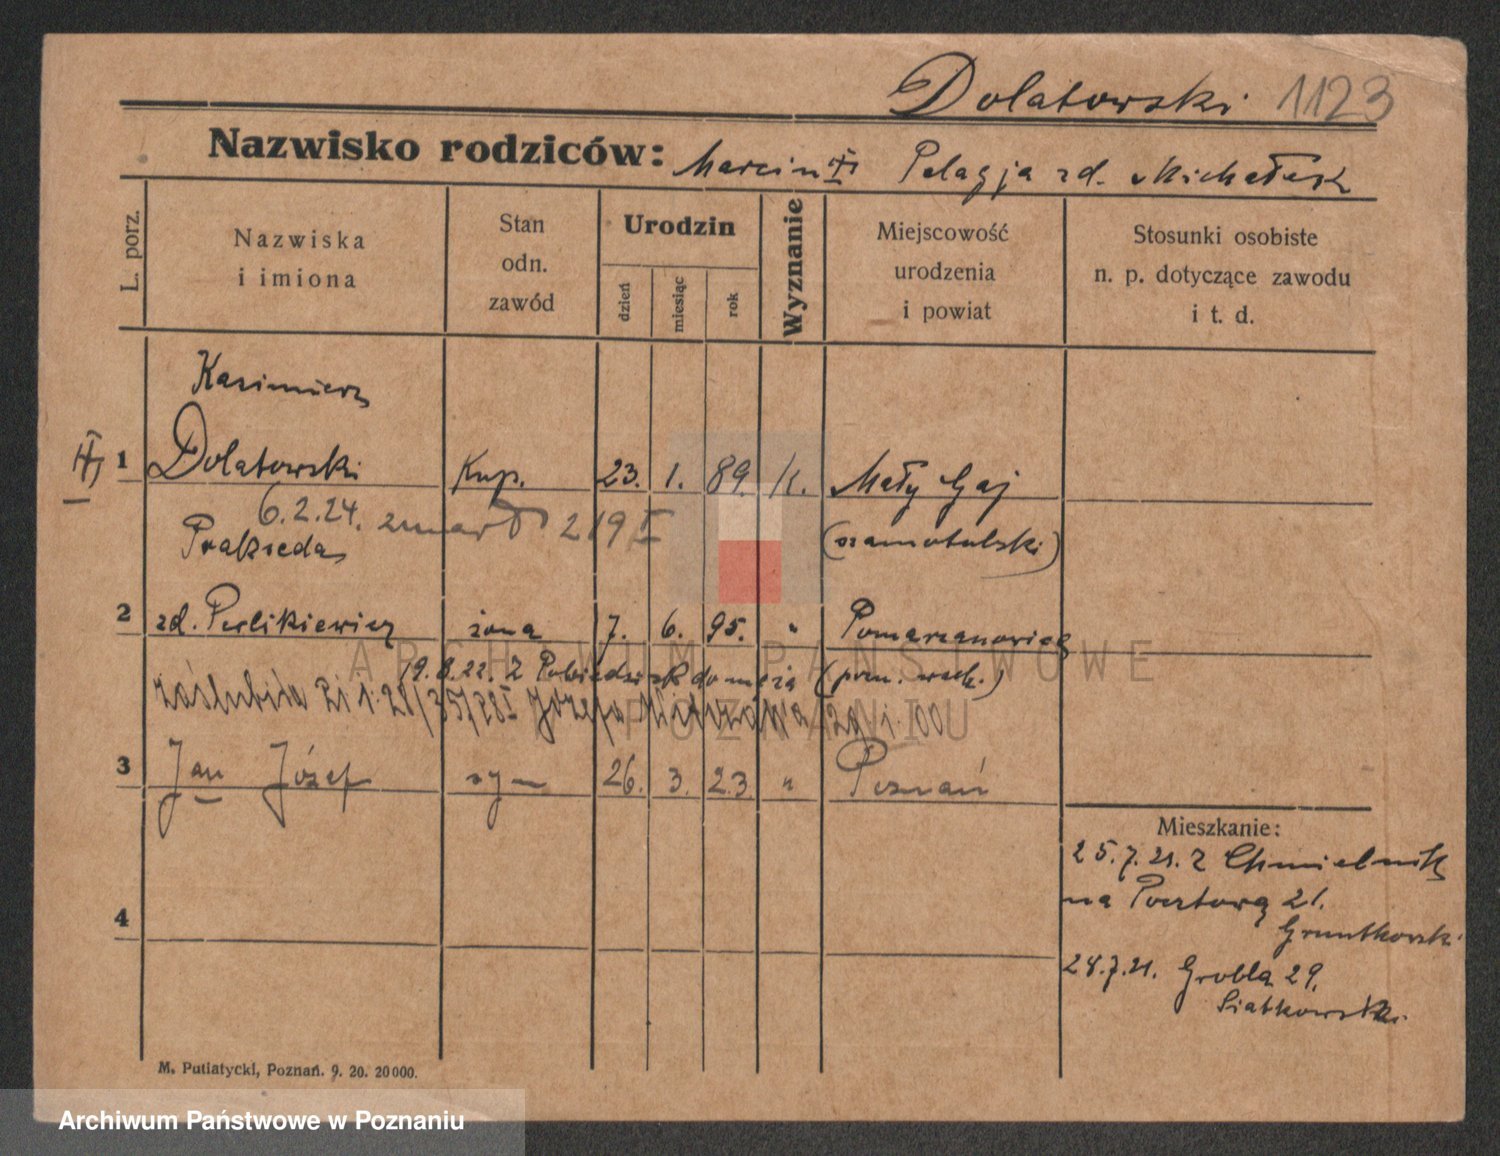 Dolatowski 1123
Nazwisko rodziców: Marcin Pelagja zd. Michałek
L. porz.
Nazwiska
i imiona
Stan
odn.
zawód
Urodzin
dzień
miesiąc
rok
Wyznanie
Miejscowość
urodzenia
i powiat
Stosunki osobiste
n. p. dotyczące zawodu
i t. d.
Kazimierz
1 Dolatowski Kup. 23. 1. 89. K. Mały Gaj
6.2.24. zmarł 219 I (szamotulski)
Prakseda
2 zd. Perlikiewicz żona 7. 6. 95. " Pomarzanowice
19.8.22. z Pobiedzisk do męża (pozn. wsch.)
zaślubiła 21.1.28/35/28I Józefa
3 Jan Józef syn 26. 3. 23 " Poznań
4
Mieszkanie:
25.7.21. z Chmielnik
na Pocztową 21.
Gruntkowski
28.7.21. Grobla 29.
Siatkowski
M. Putiatycki, Poznań. 9. 20. 20000.
ARCHIWUM PAŃSTWOWE
W POZNANIU
Archiwum Państwowe w Poznaniu